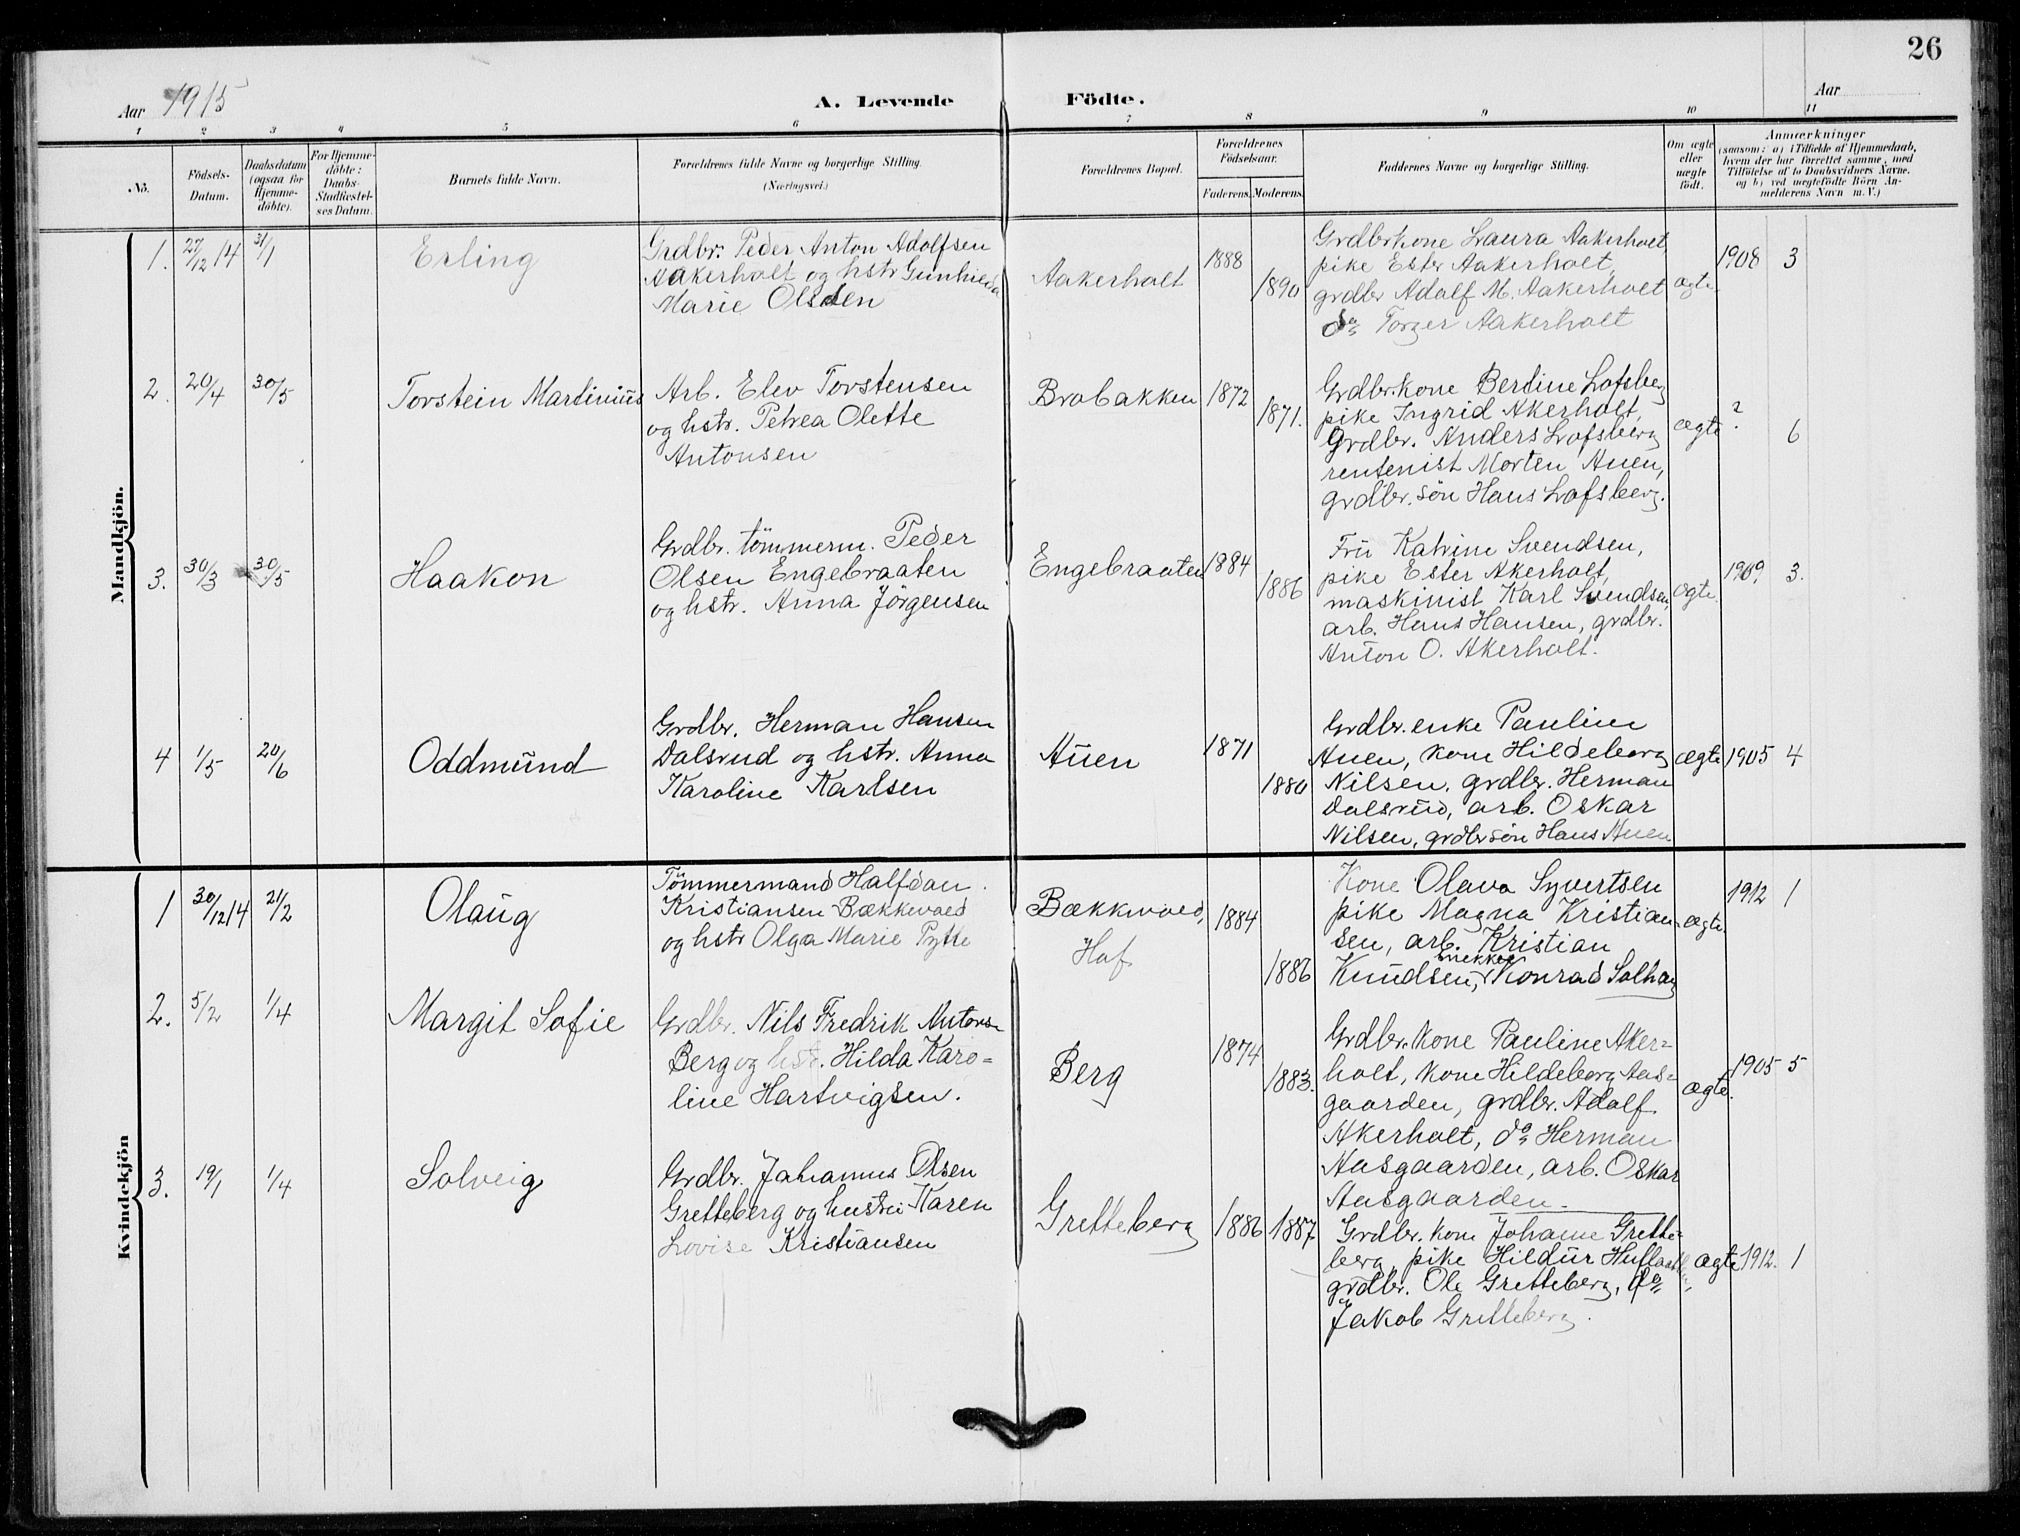 26
Aar 1915
A. Levende Födte.
Aar
1 2 3 4 5 6 7 8 9 10 11
No.
Födsels-Datum.
Daabsdatum (ogsaa for Hjemmedöbte).
For Hjemmedöbte: Daabs-Stadfæstelses Datum.
Barnets fulde Navn.
Forældrenes fulde Navne og borgerlige Stilling.
(Næringsvei.)
Forældrenes Bopæl.
Forældrenes Födselsaar.
Faderens. Moderens.
Faddernes Navne og borgerlige Stilling.
Om ægte eller uægte födt.
Anmærkninger
(saasom: a) i Tilfælde af Hjemmedaab,
hvem der har forrettet samme, med
Tilföielse af to Daabsvidners Navne.
og b) ved uægtefödte Börn An-
melderens Navn m. V.)
Mandkjön.
1. 27/12 14 31/1 Erling
Grdbr. Peder Anton Adolfsen
Aakerholt og hstr Gunhilda
Marie Olsen
Aakerholt 1888 1890
Grdbrkone Laura Aakerholt,
pike Ester Aakerholt,
grdbr Adolf M. Aakerholt
do Torger Aakerholt
ægte 1908 3
2. 20/4 30/5 Torstein Martinius
Arb. Elev Torstensen
og hstr. Petrea Olette
Antonsen
Brobakken 1872 1871.
Grdbr.kone Bertine Lofsberg
pike Ingrid Akerholt,
Grdbr. Anders Lofsberg
rentenist Morten Auen,
grdbr. sön Hans Lofsberg.
ægte ? 6
3. 30/3 30/5 Haakon
Grdbr. tömmerm. Peder
Olsen Engebraaten
og hstr. Anna Jörgensen
Engebraaten 1884 1886
Fru Katrine Svendsen,
pike Ester Akerholt,
maskinist Karl Svendsen,
arb. Hans Hansen, grdbr.
Anton O. Akerholt.
ægte. 1909. 3.
4 1/5 20/6 Oddmund
Grdbr. Herman Hansen
Dalsrud og hstr. Anna
Karoline Karlsen
Auen 1871 1880
Grdbr. enke Pauline
Auen, kone Hildeborg
Nilsen, grdbr. Herman
Dalsrud, arb. Oskar
Nilsen, grdbrsön Hans Auen
ægte 1905 4
Kvindekjön
1 30/12 14 21/2 Olaug
Tömmermand Halfdan
Kristiansen Bækkevold
og hstr Olga Marie Pytte
Bækkevold,
Hof
1884 1886
Kone Olava Syvertsen
pike Magna Kristian-
sen, arb. Kristian
snekker
Knudsen, Konrad Solhaug
ægte. 1912 1
2. 5/2 1/4 Margit Sofie
Grdbr. Nils Fredrik Antons.
Berg og hstr. Hilda Karo-
line Hartvigsen.
Berg 1874 1883.
Grdbr. kone Pauline Aker-
holt, kone Hildeborg Aas-
gaarden, grdbr. Adolf
Akerholt, do Herman
Aasgaarden, arb. Oskar
Aasgaarden.
ægte. 1905 5
3. 19/1 1/4 Solveig
Grdbr. Johannes Olsen
Gretteberg og hustru Karen
Lovise Kristiansen
Gretteberg 1886 1887
Grdbr. kone Johanne Grette-
berg, pike Hildur
grdbr. Ole Gretteberg, do
Jakob Gretteberg.
ægte 1912. 1